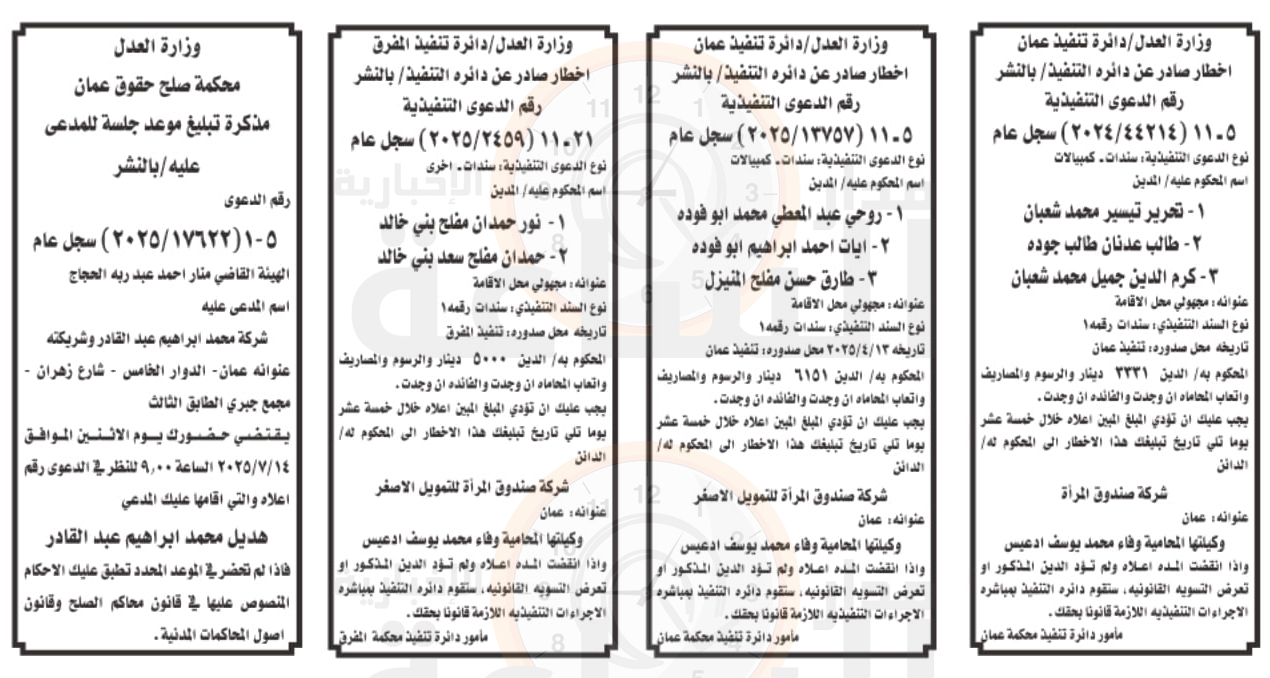 وزارة العدل/دائرة تنفيذ عمان
اخطار صادر عن دائره التنفيذ/ بالنشر
رقم الدعوى التنفيذية
٥ - ١١ (٢٠٢٤/٤٤٢١٤) سجل عام
نوع الدعوى التنفيذية: سندات - كمبيالات
اسم المحكوم عليه/ المدين
١- تحرير تيسير محمد شعبان
٢- طالب عدنان طالب جوده
٣- كرم الدين جميل محمد شعبان
عنوانه: مجهولي محل الاقامة
نوع السند التنفيذي: سندات رقمه١
تاريخه محل صدوره: تنفيذ عمان
المحكوم به/ الدين ٣٣٣١ دينار والرسوم والمصاريف
واتعاب المحاماه ان وجدت والفائده ان وجدت.
يجب عليك ان تؤدي المبلغ المبين اعلاه خلال خمسة عشر
يوما تلي تاريخ تبليغك هذا الاخطار الى المحكوم له/
الدائن
شركة صندوق المرأة
عنوانه: عمان
وكيلتها المحامية وفاء محمد يوسف ادعيس
واذا انقضت المده اعلاه ولم تؤد الدين المذكور او
تعرض التسويه القانونيه، ستقوم دائره التنفيذ بمباشره
الاجراءات التنفيذيه اللازمة قانونا بحقك.
مأمور دائرة تنفيذ محكمة عمان
وزارة العدل/دائرة تنفيذ عمان
اخطار صادر عن دائره التنفيذ/ بالنشر
رقم الدعوى التنفيذية
٥ - ١١ (٢٠٢٥/١٣٧٥٧) سجل عام
نوع الدعوى التنفيذية: سندات - كمبيالات
اسم المحكوم عليه/ المدين
١- روحي عبد المعطي محمد ابو فوده
٢- ايات احمد ابراهيم ابو فوده
٣- طارق حسن مفلح المنيزل
عنوانه: مجهولي محل الاقامة
نوع السند التنفيذي: سندات رقمه١
تاريخه ٢٠٢٥/٤/١٣ محل صدوره: تنفيذ عمان
المحكوم به/ الدين ٦١٥١ دينار والرسوم والمصاريف
واتعاب المحاماه ان وجدت والفائده ان وجدت.
يجب عليك ان تؤدي المبلغ المبين اعلاه خلال خمسة عشر
يوما تلي تاريخ تبليغك هذا الاخطار الى المحكوم له/
الدائن
شركة صندوق المرأة للتمويل الاصغر
عنوانه: عمان
وكيلتها المحامية وفاء محمد يوسف ادعيس
واذا انقضت المده اعلاه ولم تؤد الدين المذكور او
تعرض التسويه القانونيه، ستقوم دائره التنفيذ بمباشره
الاجراءات التنفيذيه اللازمة قانونا بحقك.
مأمور دائرة تنفيذ محكمة عمان
وزارة العدل/دائرة تنفيذ المفرق
اخطار صادر عن دائره التنفيذ/ بالنشر
رقم الدعوى التنفيذية
٢١ - ١١ (٢٠٢٥/٢٤٥٩) سجل عام
نوع الدعوى التنفيذية: سندات - اخرى
اسم المحكوم عليه/ المدين
١- نور حمدان مفلح بني خالد
٢- حمدان مفلح سعد بني خالد
عنوانه: مجهولي محل الاقامة
نوع السند التنفيذي: سندات رقمه١
تاريخه محل صدوره: تنفيذ المفرق
المحكوم به/ الدين ٥٠٠٠ دينار والرسوم والمصاريف
واتعاب المحاماه ان وجدت والفائده ان وجدت.
يجب عليك ان تؤدي المبلغ المبين اعلاه خلال خمسة عشر
يوما تلي تاريخ تبليغك هذا الاخطار الى المحكوم له/
الدائن
شركة صندوق المرأة للتمويل الاصغر
عنوانه: عمان
وكيلتها المحامية وفاء محمد يوسف ادعيس
واذا انقضت المده اعلاه ولم تؤد الدين المذكور او
تعرض التسويه القانونيه، ستقوم دائره التنفيذ بمباشره
الاجراءات التنفيذيه اللازمة قانونا بحقك.
مأمور دائرة تنفيذ محكمة المفرق
وزارة العدل
محكمة صلح حقوق عمان
مذكرة تبليغ موعد جلسة للمدعى
عليه/بالنشر
رقم الدعوى
٥-١ (٢٠٢٥/١٧٦٢٢) سجل عام
الهيئة القاضي منار احمد عبد ربه الحجاج
اسم المدعى عليه
شركة محمد ابراهيم عبد القادر وشريكته
عنوانه عمان- الدوار الخامس - شارع زهران -
مجمع جبري الطابق الثالث
يقتضي حضورك يوم الاثنين الموافق
٢٠٢٥/٧/١٤ الساعة ٩,٠٠ للنظر في الدعوى رقم
اعلاه والتي اقامها عليك المدعي
هديل محمد ابراهيم عبد القادر
فاذا لم تحضر في الموعد المحدد تطبق عليك الاحكام
المنصوص عليها في قانون محاكم الصلح وقانون
اصول المحاكمات المدنية.